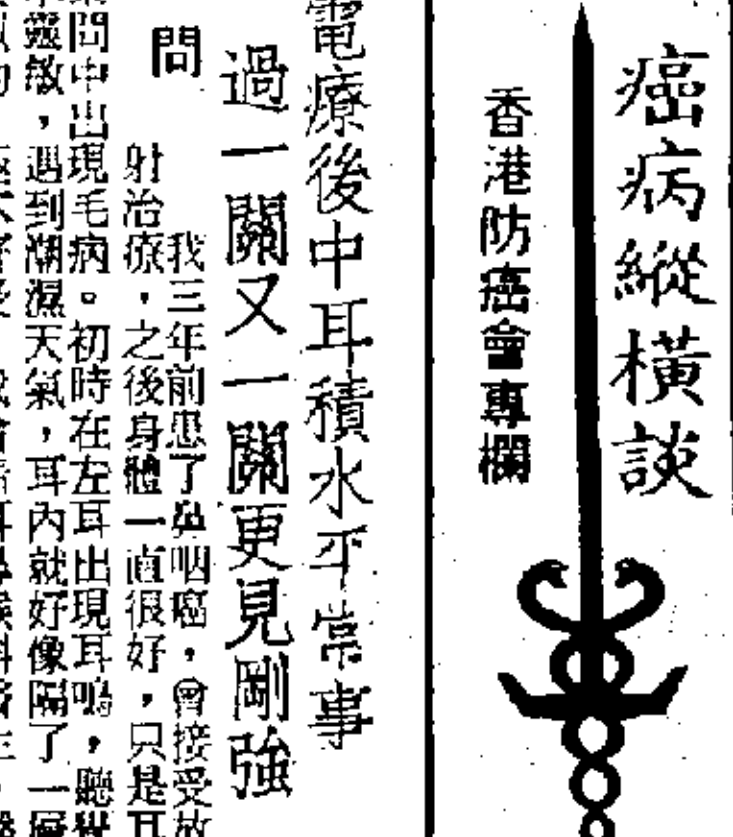 癌病縱橫談
香港防癌會專欄
電療後中耳積水平常事
過一關又一關更見剛強
問
我三年前患了鼻咽癌，曾接受放
射治療，之後身體一直很好，只是耳
間中出現毛病。初時在左耳出現耳鳴，聽覺
靈敏，遇到潮濕天氣，耳內就好像隔了一層